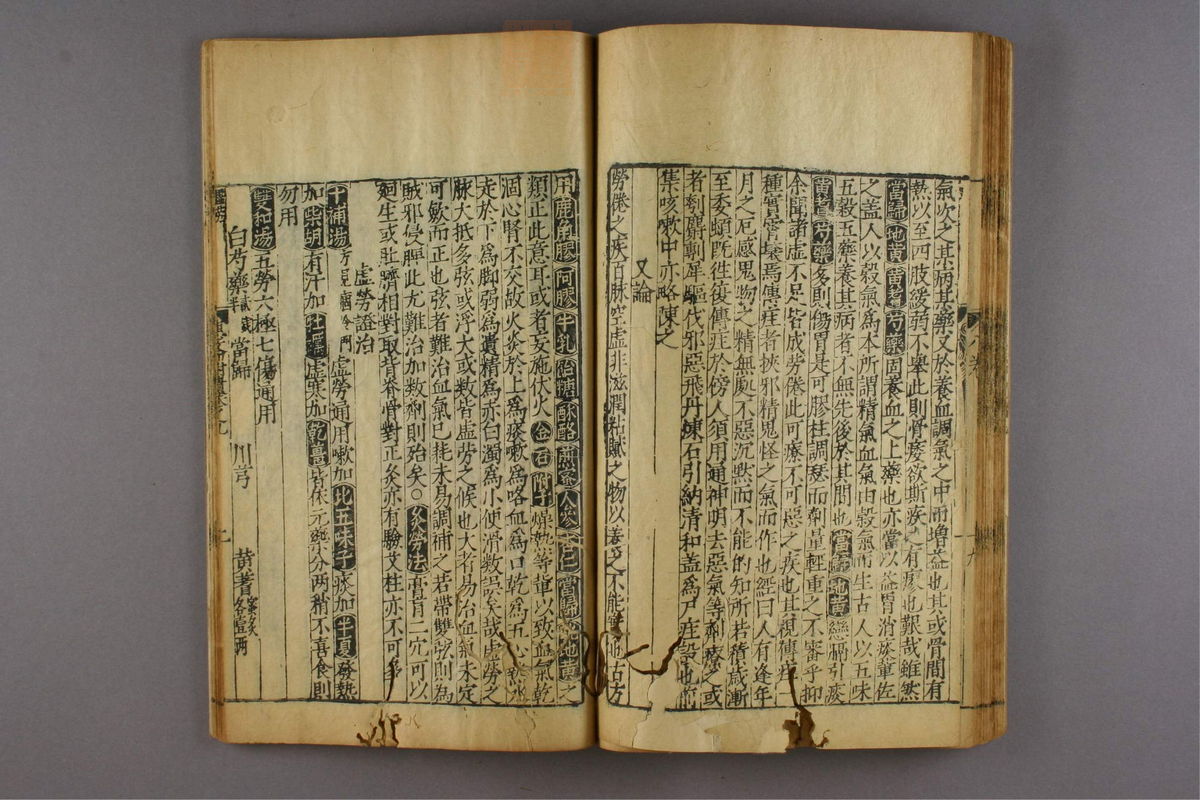 氣次之其病其藥又於養血調氣之中而增益也其或骨間有
熱以至四肢緩弱不舉此則骨痿欲斯疾之有廖也艱哉雖然
當歸地黃黃耆芍藥固養血之上藥也亦當以益胃消痰輩佐
之蓋人以穀氣為本所謂精氣血氣由穀氣而生古人以五味
五穀五藥養其病者不無先後於其間也當歸地黃戀膈引痰
黃耆芍藥多則傷胃是可膠柱調瑟而劑量輕重之不審乎抑
余聞諸虛不足皆成勞倦此可療不可惡之疾也其視傳疰一
種實霄壤焉傳疰者挾邪精鬼怪之氣而作也經曰人有逢年
月之厄感鬼物之精無處不惡沉默而不能的知所若積歲漸
至委頓既徃復傳疰於傍人須用通神明去惡氣等劑療之或
者刳麝剸犀驅伐邪惡飛丹煉石引納清和蓋為尸疰設也前
集咳嗽中亦略陳之
又論
勞倦之疾百脉空虛非滋潤粘膩之物以養之不能 也古方
用鹿角膠阿膠牛乳飴糖酥酪煎蜜人參杏仁當歸 地黃之
類正此意耳或者妄施伏火金石附子燥熱等輩以致血氣乾
涸心腎不交故火炎於上為痰嗽為咯血為口乾為五心熱水
走於下為脚弱為遺精為赤白濁為小便滑數誤矣哉虛勞之
脉大抵多弦或浮大或數皆虛勞之候也大者易治血氣未定
可斂而正也弦者難治血氣已耗未易調補之若帶雙弦則為
賊邪侵脾此尤難治加數劑則殆矣○灸勞法膏肓二穴可以
廻生或肚臍相對取背脊骨對正灸亦有驗艾柱亦不可多
虛勞證治
十補湯方見痼冷門 虛勞通用嗽加北五味子痰加半夏發熱
加柴胡有汗加牡蠣虛寒加乾薑皆依元藥分兩稍不喜食則
勿用
雙和湯 五勞六極七傷通用
白芍藥貳兩半 當歸 川芎 黃耆蜜炙各壹兩